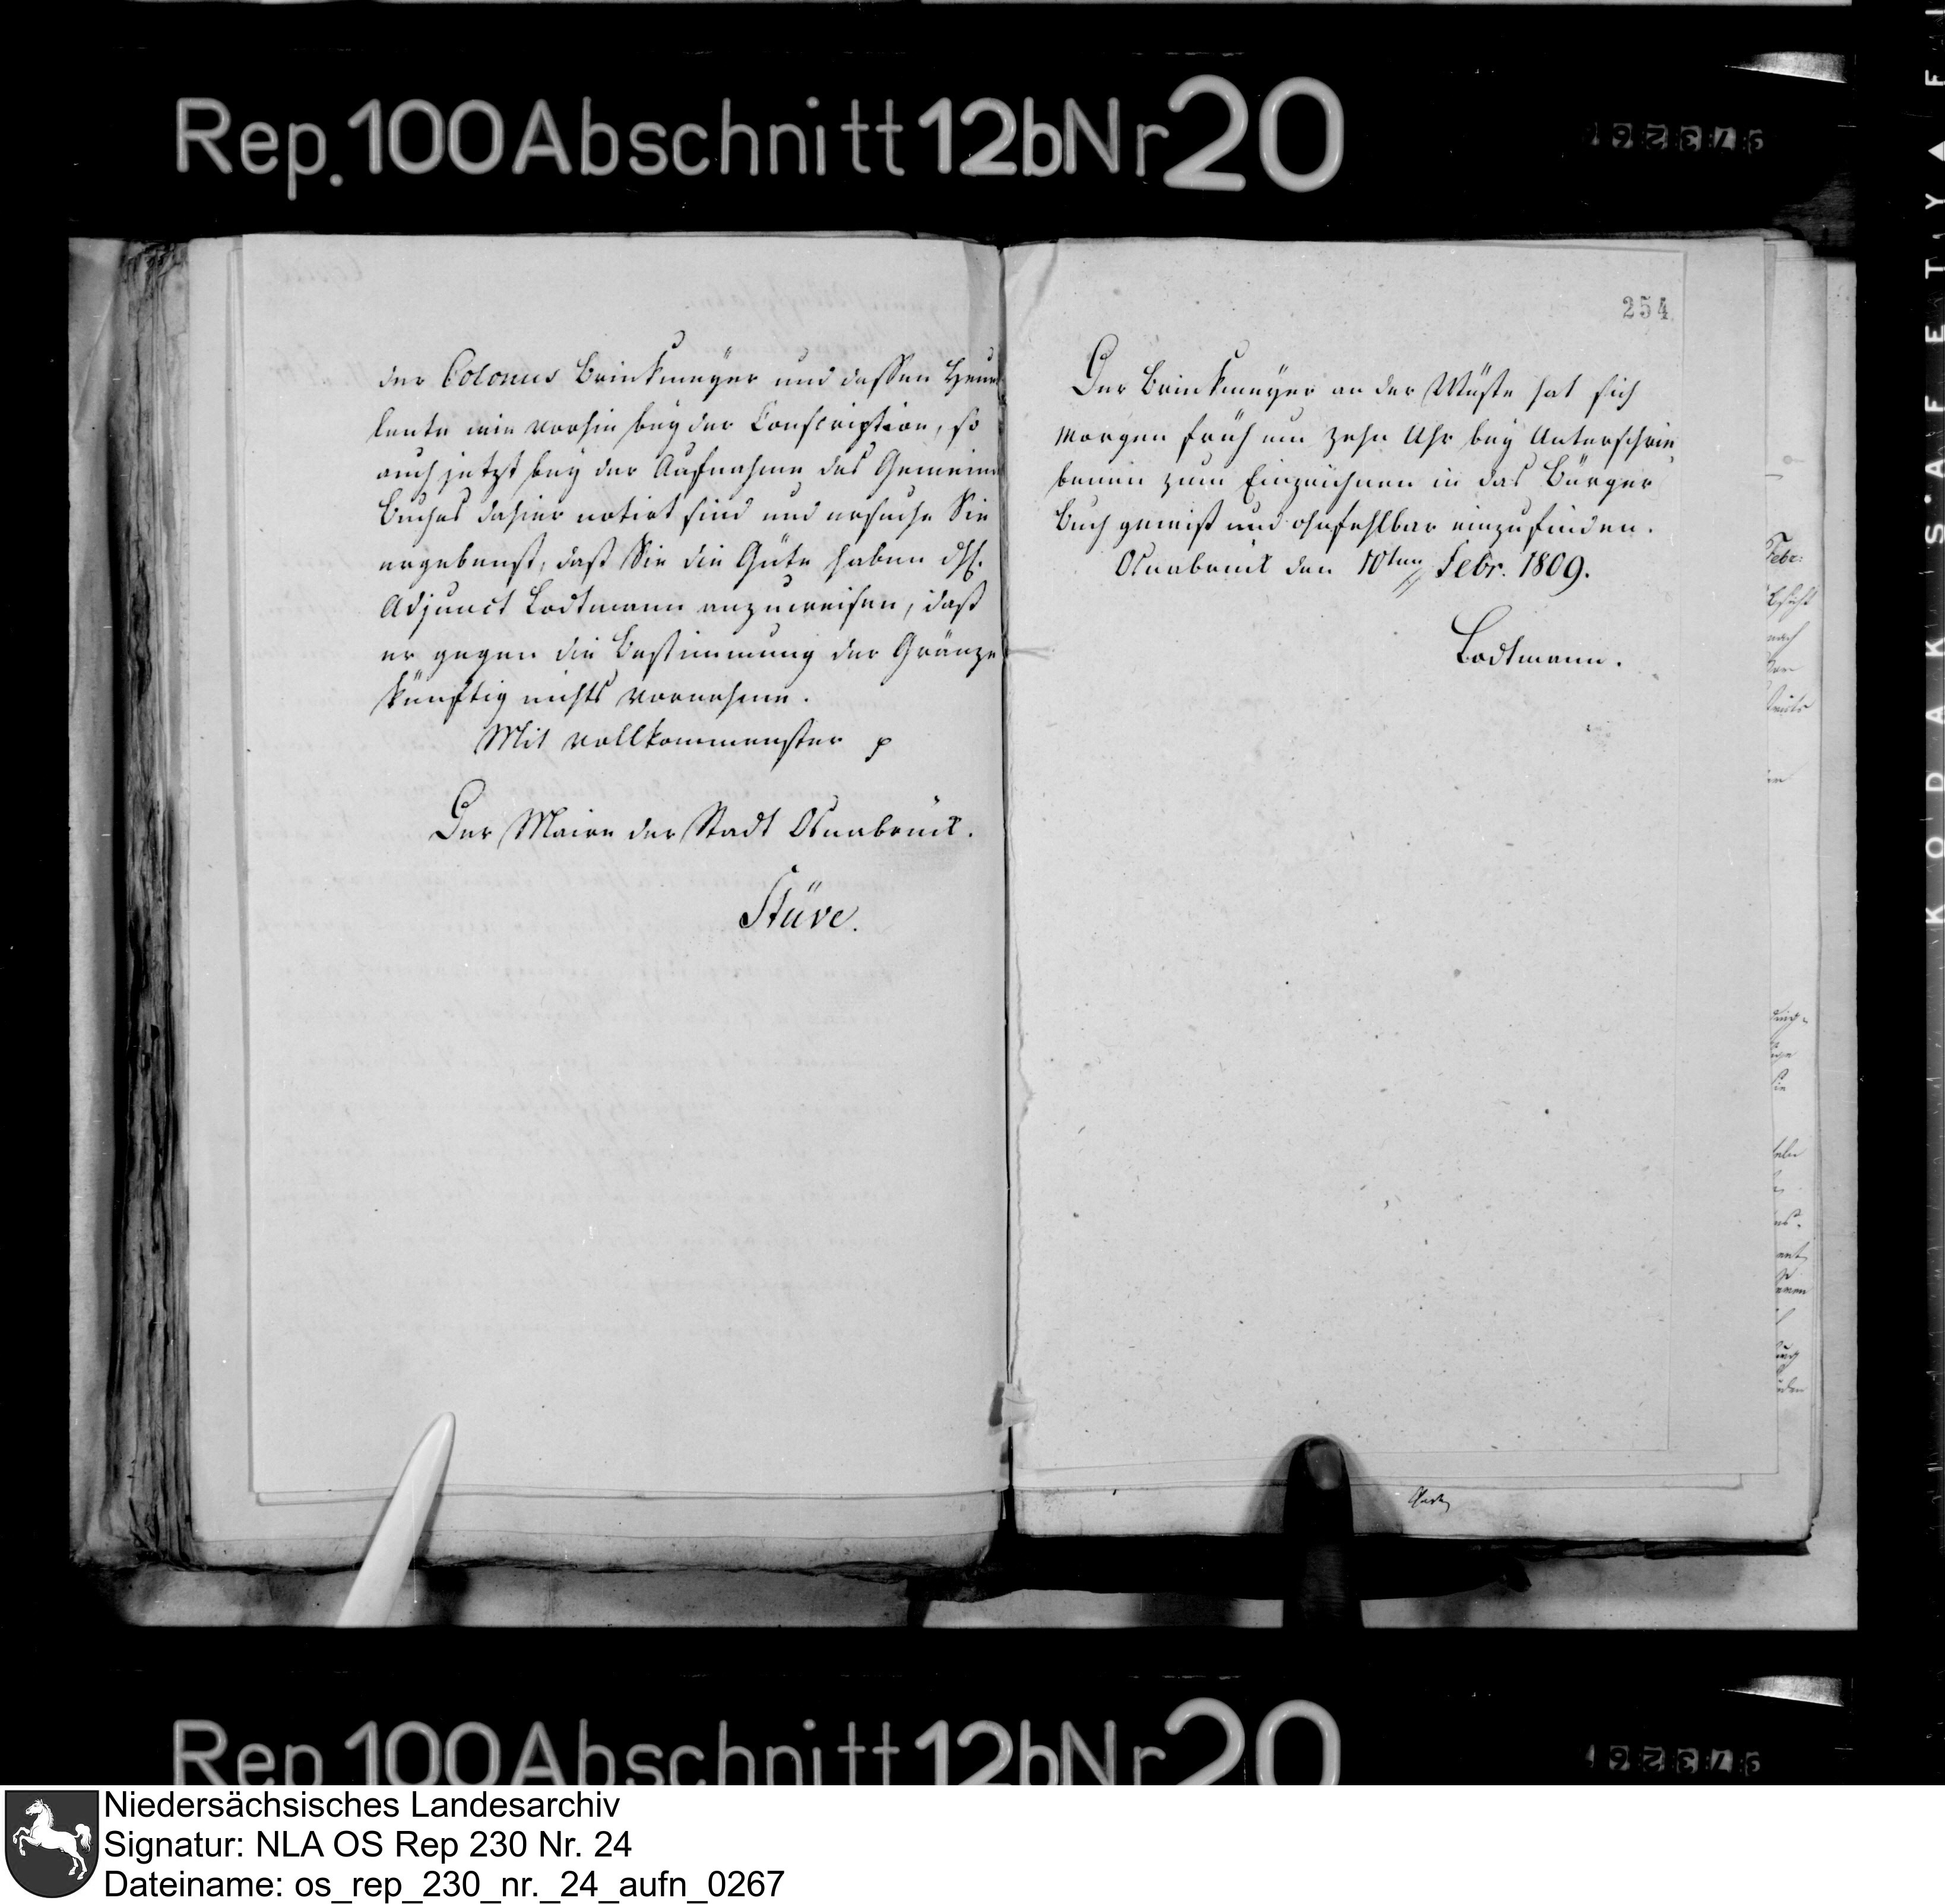 Rep. 100 Abschnitt 12b Nr 20
der Colonus Brinkmeyer und dessen Heuer
leute wie vorhin bey der Conscription, so
auch jetzt bey der Aufnahme des Gemeine
Buches dahier notirt sind und ersuche Sie
ergebenst, daß Sie die Güte haben
Adjunct Lodtmann anzuweisen, daß
er gegen die Bestimmung der Gränze
künftig nichts vornehme.
Mit vollkommenster p
Der Maire der Stadt Osnabrück.
Stüve.
254
Der Brinkmeyer an der Wüste hat sich
morgen früh um zehn Uhr bey Unterschrie
benen zum Einzeichnen in das Bürger
Buch gewiß und ohnfehlbar einzufinden.
Osnabrück den 10ten Febr. 1809.
Lodtmann.
Febr:
KODAK SAFETY
Rep. 100 Abschnitt 12b Nr 20
Niedersächsisches Landesarchiv
Signatur: NLA OS Rep 230 Nr. 24
Dateiname: os_rep_230_nr._24_aufn_0267